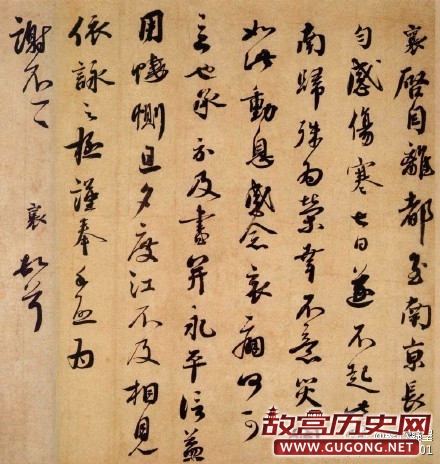 襄啓自離都至南京長
匀感傷寒七日遂不起此
南歸殊為榮幸不意災
如此動息感念哀痛何可
言也承示及書并永平信益
用悽惻旦夕度江不及相見
依詠之極謹奉手啓為
謝不一一 襄頓首
故宫历史网
WWW.GUGONG.NET
01